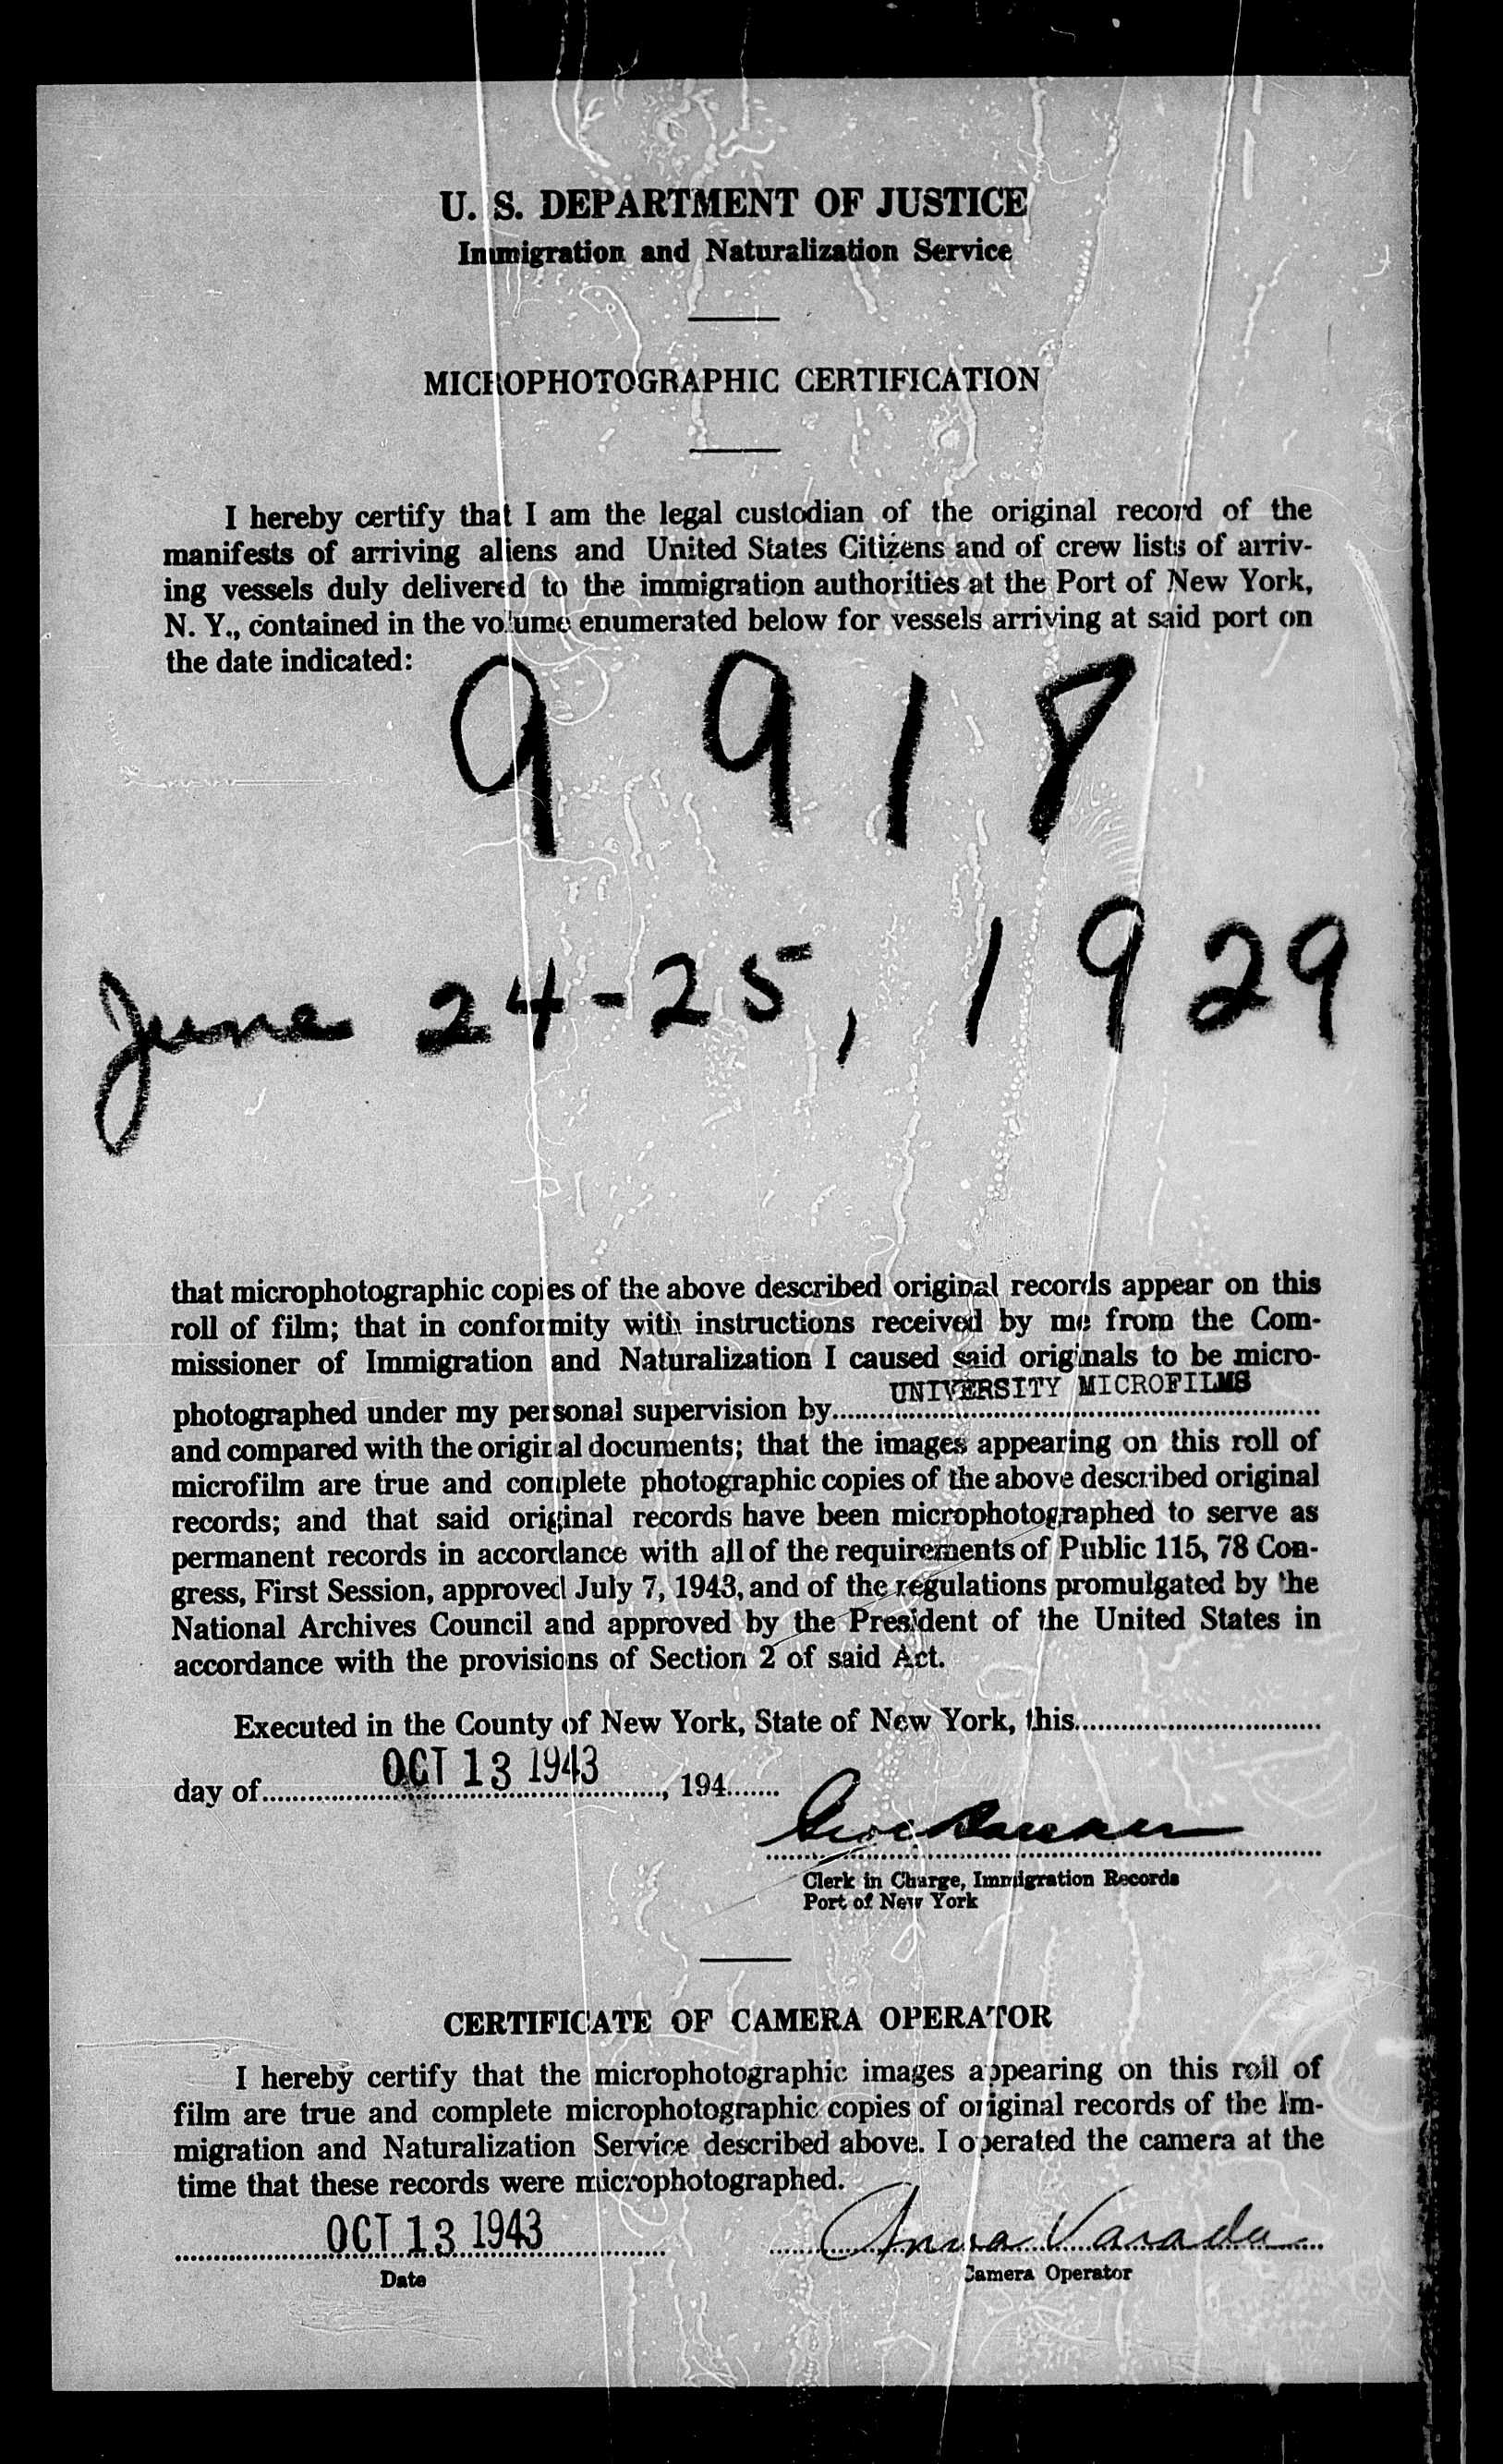 U. S. DEPARTMENT OF JUSTICE
Immigration and Naturalization Service
MICROPHOTOGRAPHIC CERTIFICATION
I hereby certify that I am the legal custodian of the original record of the
manifests of arriving aliens and United States Citizens and of crew lists of arriv-
ing vessels duly delivered to the immigration authorities at the Port of New York,
N. Y., contained in the volume enumerated below for vessels arriving at said port on
the date indicated:
9918
June 24-25, 1929
that microphotographic copies of the above described original records appear on this
roll of film; that in conformity with instructions received by me from the Com-
missioner of Immigration and Naturalization I caused said originals to be micro-
UNIVERSITY MICROFILMS
photographed under my personal supervision by
and compared with the original documents; that the images appearing on this roll of
microfilm are true and complete photographic copies of the above described original
records; and that said original records have been microphotographed to serve as
permanent records in accordance with all of the requirements of Public 115, 78 Con-
gress, First Session, approved July 7, 1943, and of the regulations promulgated by the
National Archives Council and approved by the President of the United States in
accordance with the provisions of Section 2 of said Act.
Executed in the County of New York, State of New York, this
day of OCT 13 1943, 194
Clerk in Charge, Immigration Records
Port of New York
CERTIFICATE OF CAMERA OPERATOR
I hereby certify that the microphotographic images appearing on this roll of
film are true and complete microphotographic copies of original records of the Im-
migration and Naturalization Service described above. I operated the camera at the
time that these records were microphotographed.
OCT 13 1943 Anna Varada
Date Camera Operator